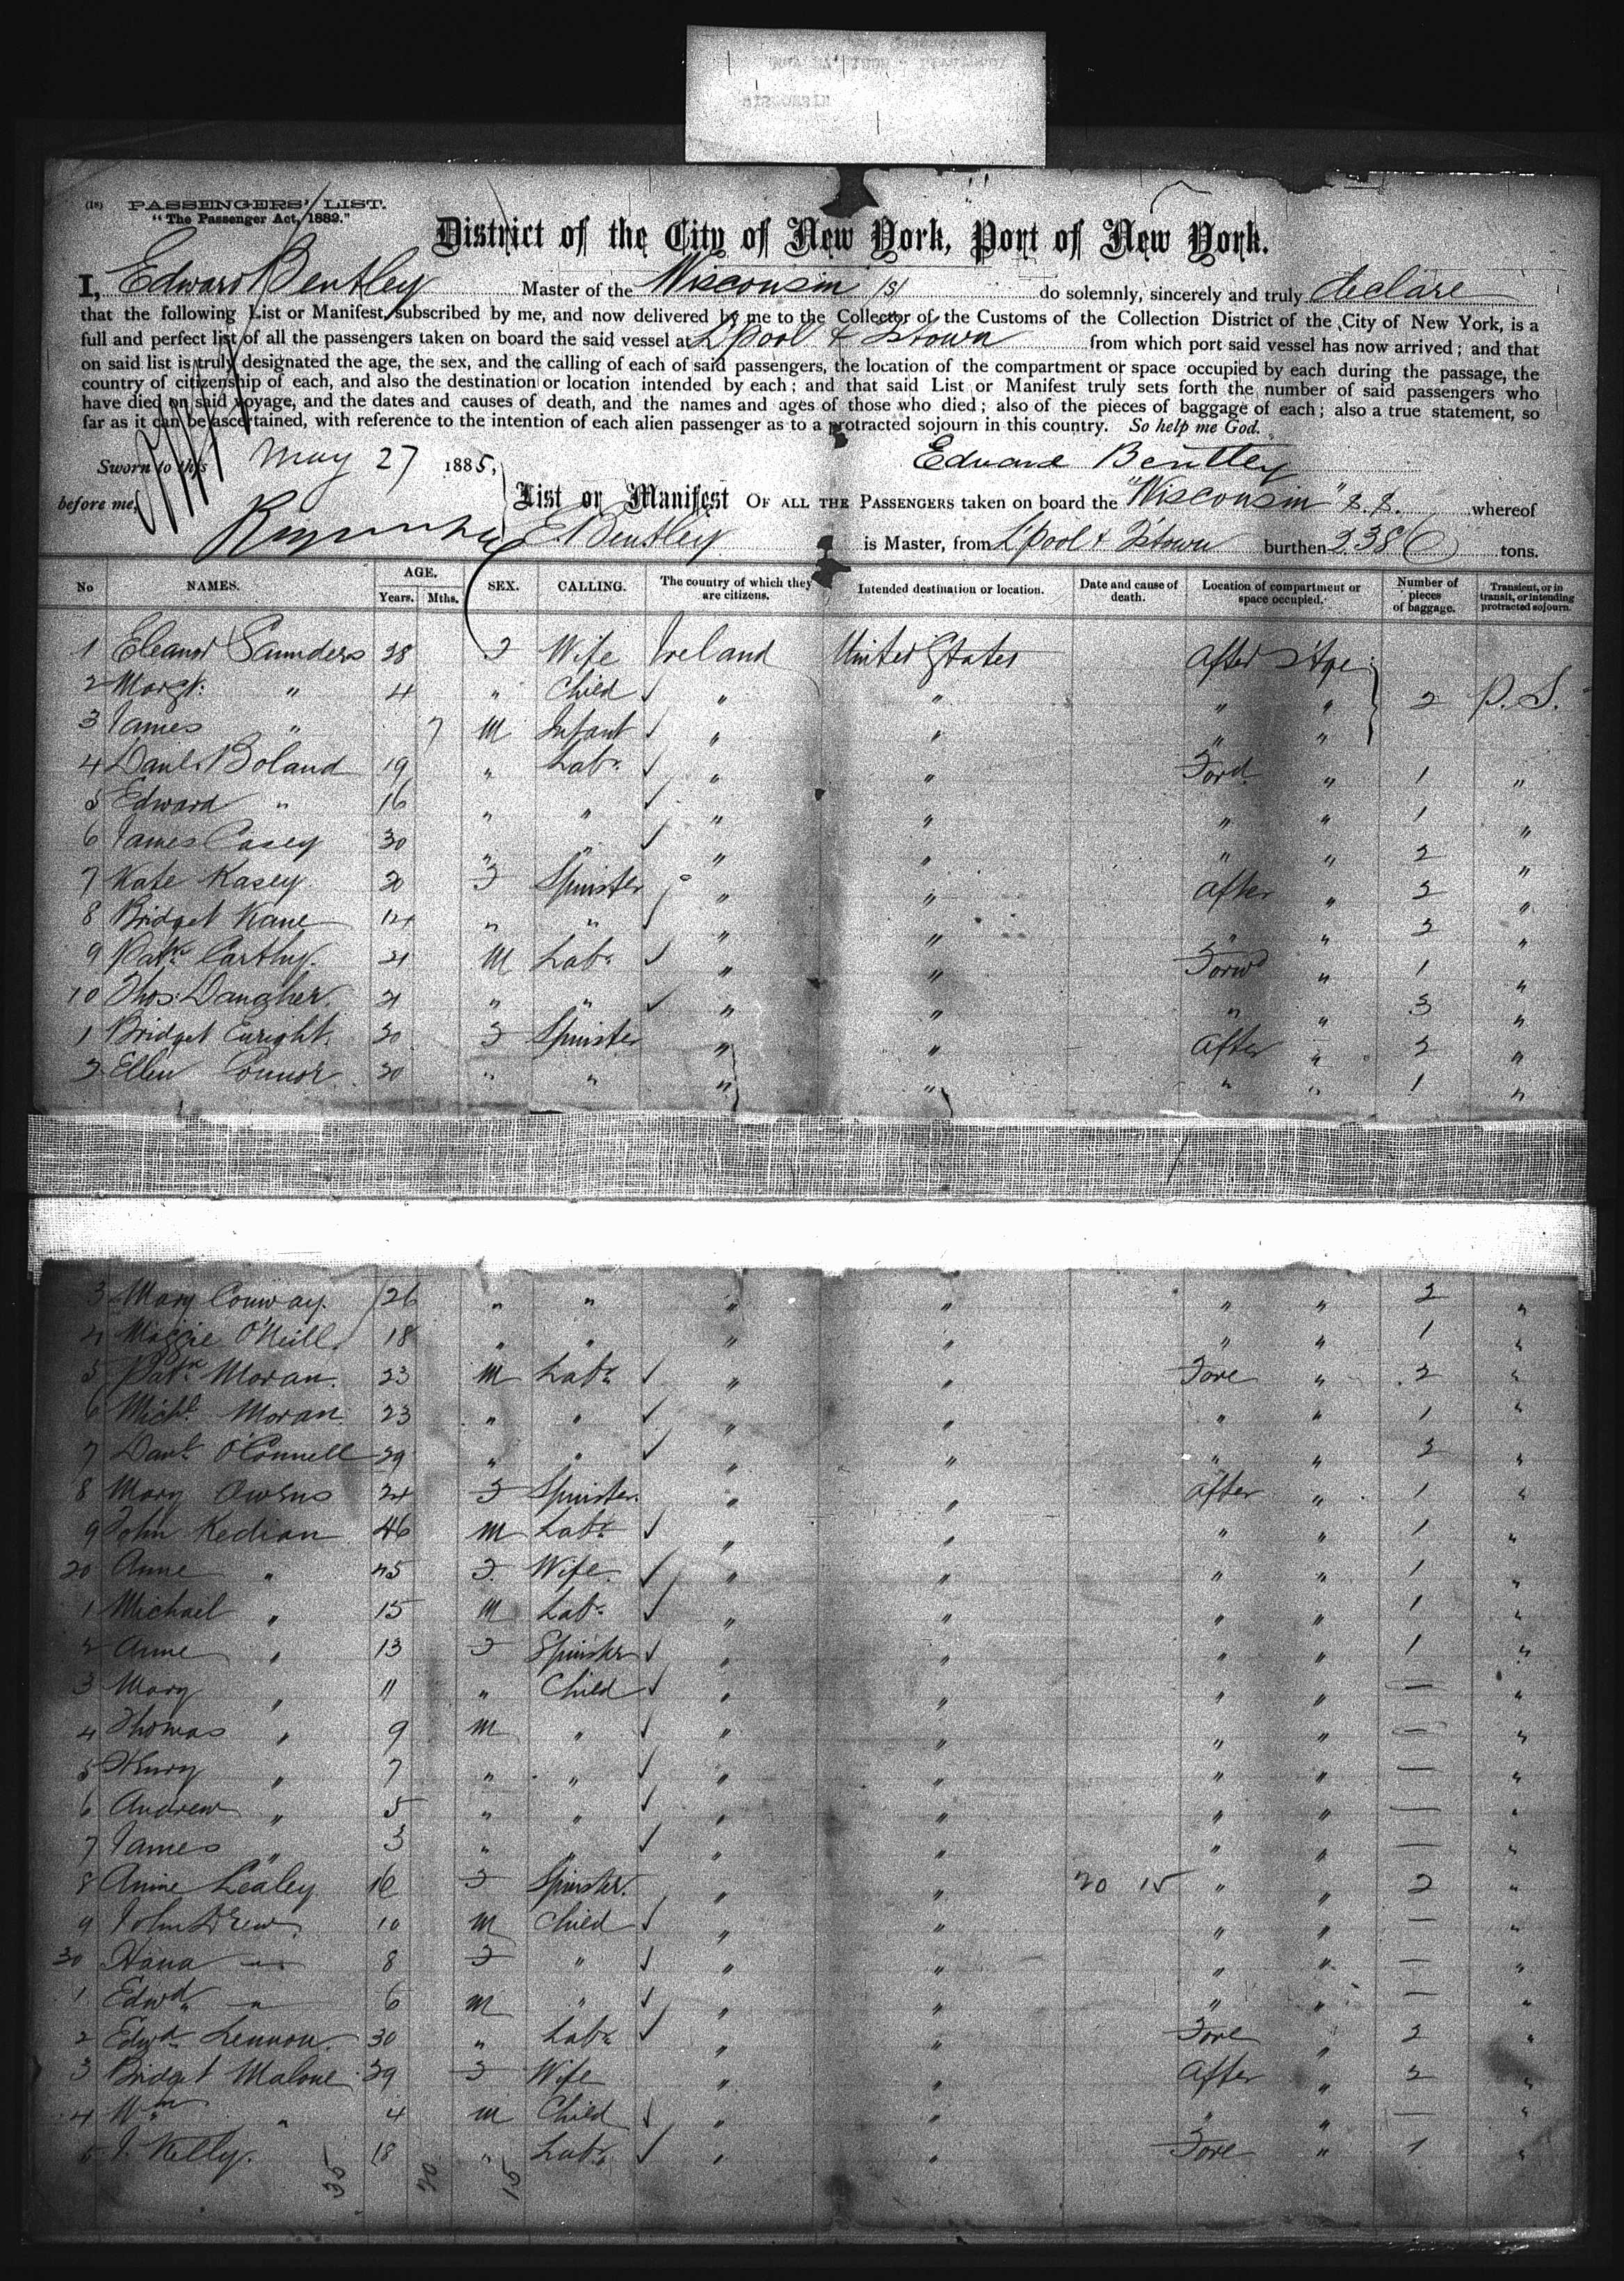 WISCONSIN
(18) PASSENGERS' LIST.
"The Passenger Act, 1882."
District of the City of New York, Port of New York.
I, Edward Bentley Master of the Wisconsin /s/ do solemnly, sincerely and truly declare
that the following List or Manifest, subscribed by me, and now delivered by me to the Collector of the Customs of the Collection District of the City of New York, is a
full and perfect list of all the passengers taken on board the said vessel at L'pool & Q'town from which port said vessel has now arrived; and that
on said list is truly designated the age, the sex, and the calling of each of said passengers, the location of the compartment or space occupied by each during the passage, the
country of citizenship of each, and also the destination or location intended by each; and that said List or Manifest truly sets forth the number of said passengers who
have died on said voyage, and the dates and causes of death, and the names and ages of those who died; also of the pieces of baggage of each; also a true statement, so
far as it can be ascertained, with reference to the intention of each alien passenger as to a protracted sojourn in this country. So help me God.
Sworn to this May 27 1885, Edward Bentley
before me,
List or Manifest OF ALL THE PASSENGERS taken on board the "Wisconsin" S.S. whereof
E. Bentley is Master, from L'pool & Q'town burthen 3386 tons.
No NAMES. AGE. Years. Mths. SEX. CALLING. The country of which they are citizens. Intended destination or location. Date and cause of death. Location of compartment or space occupied. Number of pieces of baggage. Transient, or in transit, or intending protracted sojourn.
1 Eleanor Saunders 28 F Wife Ireland United States After Stge
2 Margt. " 4 " Child ✓ " " " " 2 P.S.
3 James " 7 M Infant ✓ " " " "
4 Danl. Boland 19 " Labr ✓ " " Ford " 1 "
5 Edward " 16 " " ✓ " " " " 1 "
6 James Casey 30 " " ✓ " " " " 2 "
7 Kate Kasey 20 F Spinster " " After " 2 "
8 Bridget Kane 14 " " ✓ " " " " 2 "
9 Patk Carthy. 21 M Labr ✓ " " Forwd " 1 "
10 Thos. Dangher. 21 " " ✓ " " " " 3 "
1 Bridget Enright. 20 F Spinster " " After " 2 "
2 Ellen Connor 20 " " " " " " 1 "
3 Mary Conway. 26 " " " " " " 2 "
4 Maggie O'Neill. 18 " " " " " " 1 "
5 Patk Moran. 23 M Labr ✓ " " Fore " 2 "
6 Michl. Moran. 23 " " ✓ " " " " 1 "
7 Danl. O'Connell 29 " " ✓ " " " " 2 "
8 Mary Owens 24 F Spinster. " " After " 1 "
9 John Kedian 46 M Labr ✓ " " " " 1 "
20 Anne " 45 F. Wife. ✓ " " " " 1 "
1 Michael " 15 M Labr ✓ " " " " 1 "
2 Anne " 13 F Spinster ✓ " " " " 1 "
3 Mary " 11 " Child ✓ " " " " — "
4 Thomas " 9 M " ✓ " " " " — "
5 Henry " 7 " " ✓ " " " " — "
6 Andrew " 5 " " ✓ " " " " — "
7 James " 3 " " ✓ " " " " — "
8 Annie Lealey 16 F Spinster. " " 20 15 " " 2 "
9 John Drew 10 M Child ✓ " " " " — "
30 Hana " 8 F " ✓ " " " " — "
1 Edwd " 6 M " ✓ " " " " — "
2 Edwd Lennon. 30 " Labr ✓ " " Fore " 2 "
3 Bridget Malone 39 F Wife " " After " 2 "
4 Wm " 4 M Child ✓ " " " " — "
5 J. Kelly. 18 " Labr ✓ " " Fore " 1 "
35 20 15